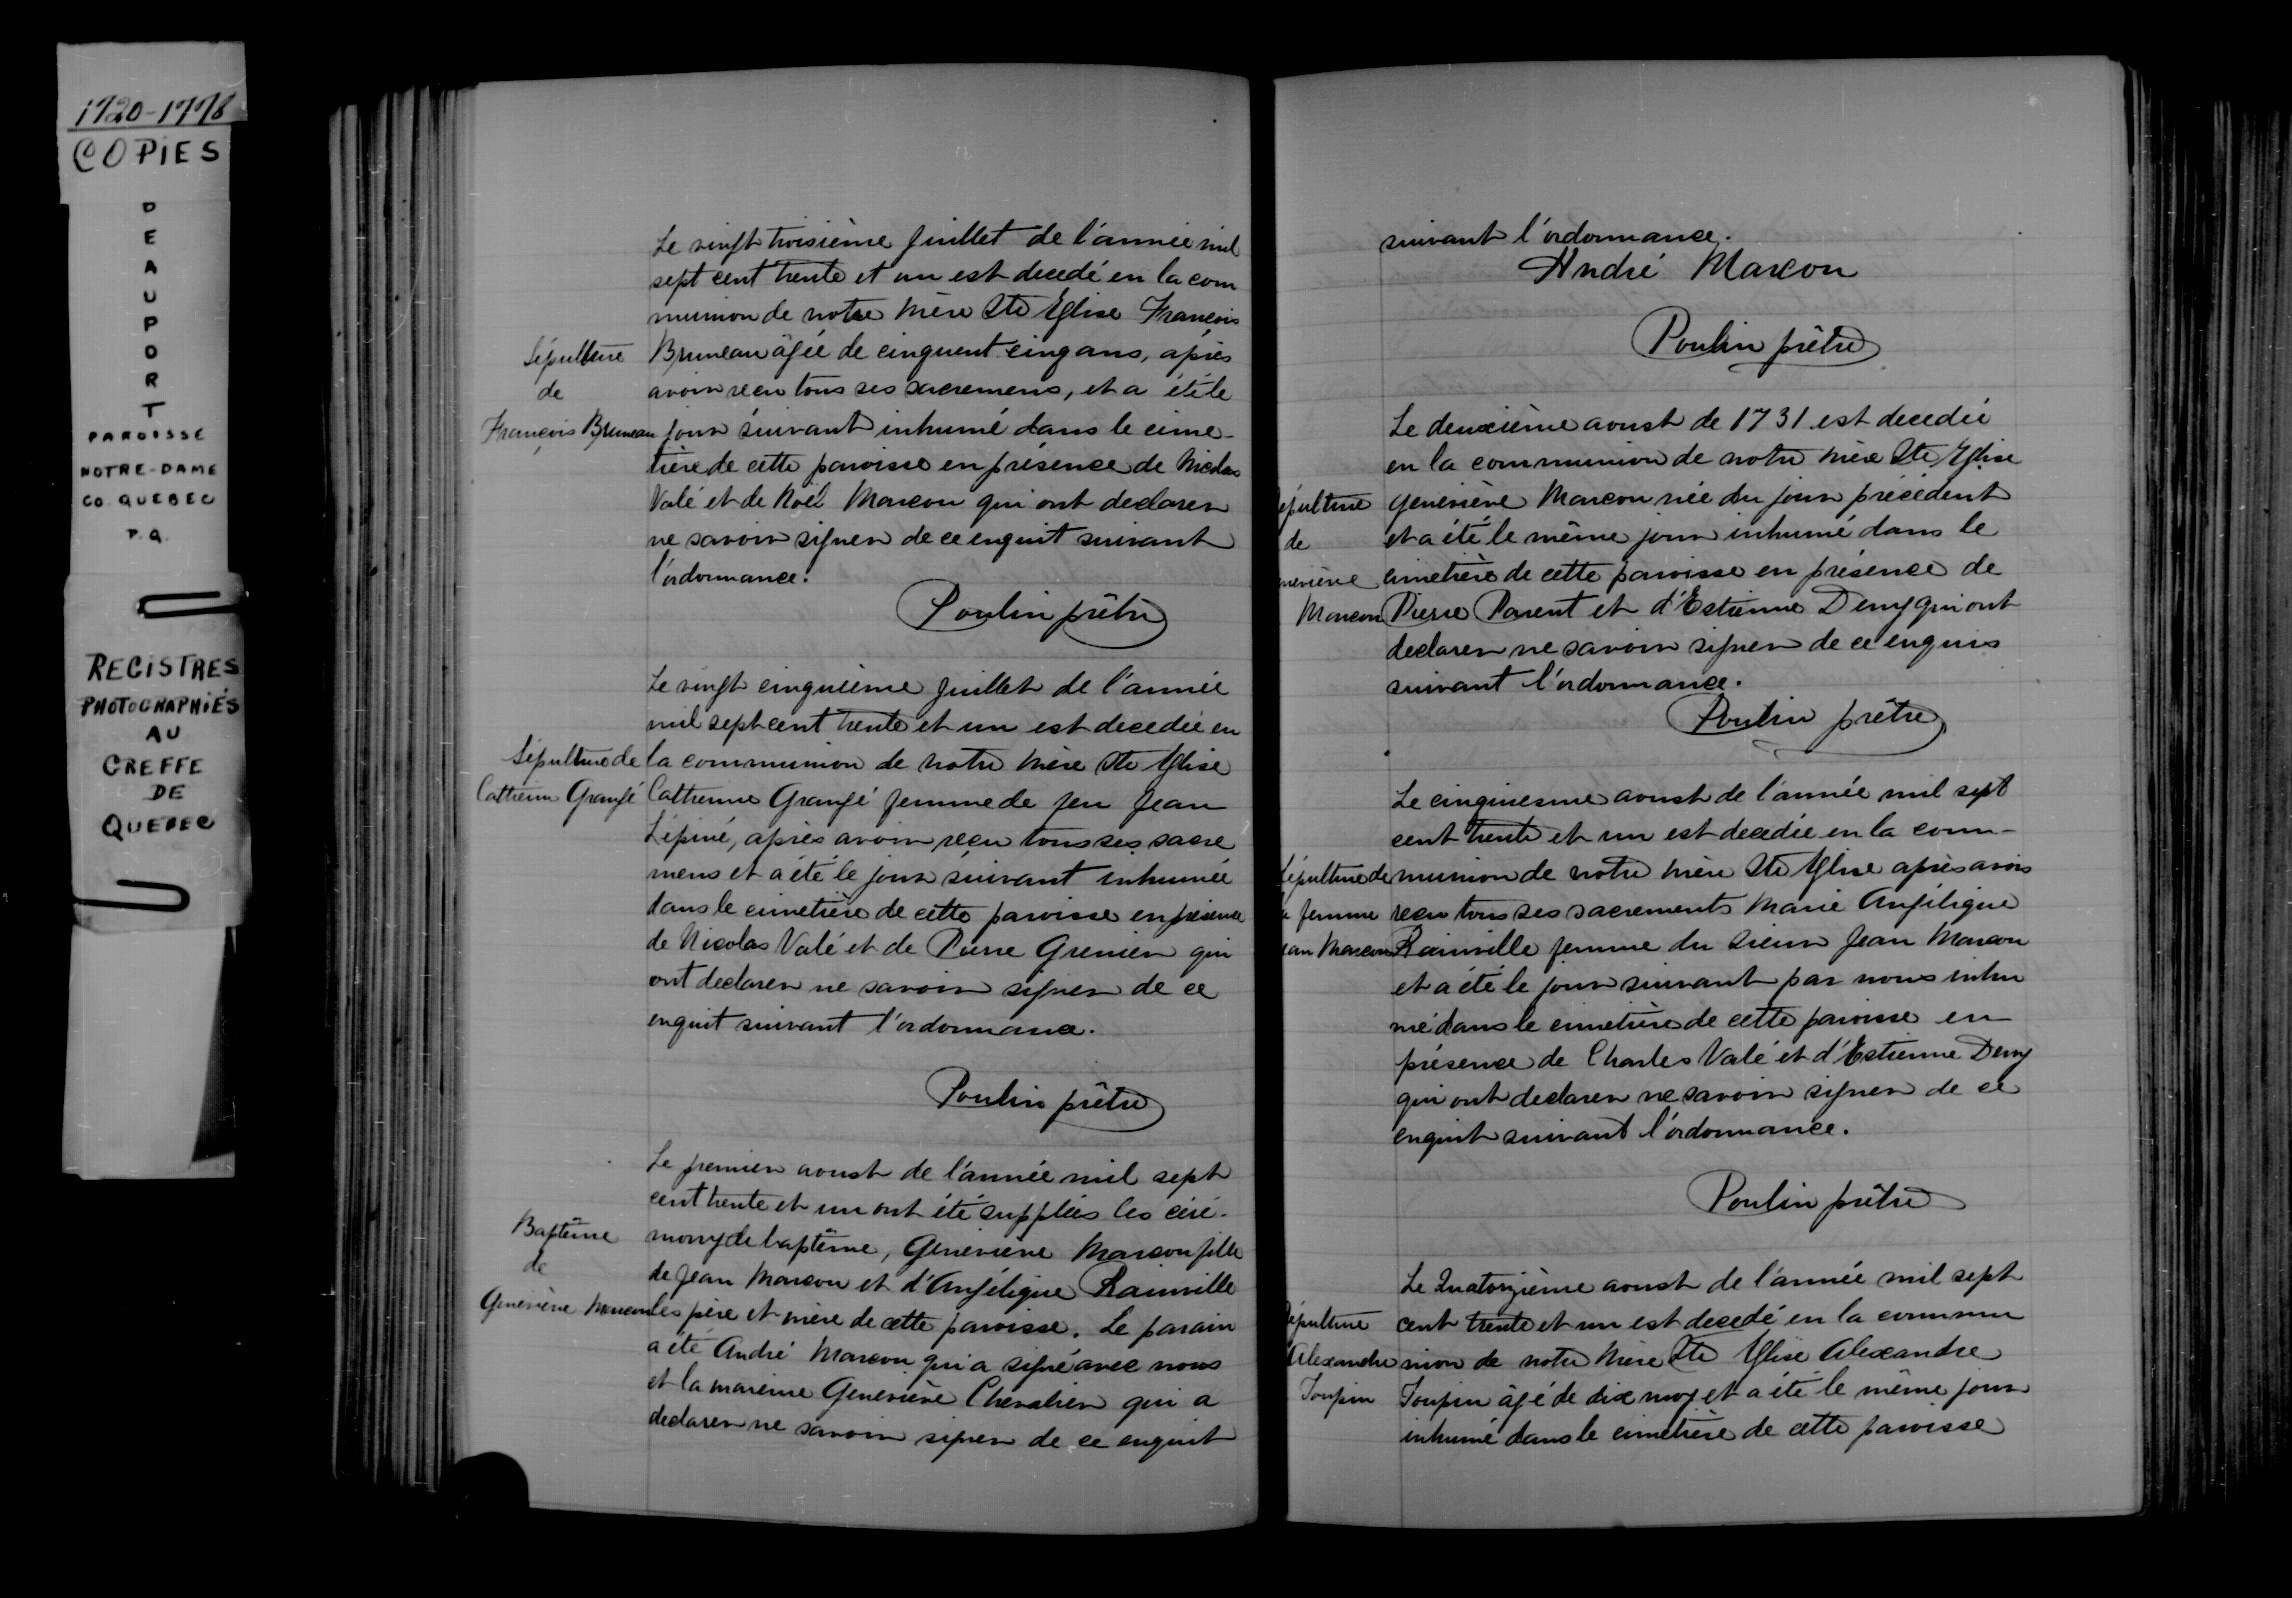 1720-1778
COPIES
DEAUPORT
PAROISSE
NOTRE-DAME
CO. QUEBEC
P.Q.
REGISTRES
PHOTOGRAPHIÉS
AU
GREFFE
DE
QUEBEC
Le vingt troisième Juillet de l'année mil
sept cent trente et un est decedé en la com
munion de notre Mère Ste Eglise François
Bruneau âgée de cinquent cinq ans, après
avoir recu tous ses sacremens, et a été le
jour suivant inhumé dans le cime-
tière de cette paroisse en présence de Nicolas
Valé et de Noël Marcou qui ont declarer
ne savoir signer de ce enquit suivant
l'ordonnance.
Poulin prêtre
Sépulture
de
François Bruneau
Le vingt cinquième Juillet de l'année
mil sept cent trente et un est decedée en
la communion de notre Mère Ste Eglise
Catherine Grangé femme de feu Jean
Lépine, après avoir recu tous ses sacre
mens et a été le jour suivant inhumée
dans le cimetière de cette paroisse en présence
de Nicolas Valé et de Pierre Grenier qui
ont declarer ne savoir signer de ce
enquit suivant l'ordonnance.
Poulin prêtre
Sépulture de
Catherine Grangé
Le premier aoust de l'année mil sept
cent trente et un ont été supplées les céré-
mony de baptême, Geneviève Marcou fille
de Jean Marcou et d'Angélique Rainville
les père et mère de cette paroisse. Le parain
a été André Marcou qui a signé avec nous
et la mareine Geneviève Chevalier qui a
declarer ne savoir signer de ce enquit
Baptême
de
Geneviève Marcou
suivant l'ordonnance.
André Marcou
Poulin prêtre
Le deuxième aoust de 1731 est decedée
en la communion de notre Mère Ste Eglise
Geneviève Marcou née du jour précédent
et a été le même jour inhumé dans le
cimetière de cette paroisse en présence de
Pierre Parent et d'Estienne Demy qui ont
declarer ne savoir signer de ce enquis
suivant l'ordonnance.
Poulin prêtre
épulture
de
neviève
Marcou
Le cinquiesme aoust de l'année mil sept
cent trente et un est decedée en la com-
munion de notre Mère Ste Eglise après avoir
recu tous ses sacrements Marie Angélique
Rainville femme du Sieur Jean Marcou
et a été le jour suivant par nous inhu
mé dans le cimetière de cette paroisse en
présence de Charles Valé et d'Estienne Demy
qui ont declarer ne savoir signer de ce
enquit suivant l'ordonnance.
Poulin prêtre
Sépulture de
a femme
ean Marcou
Le Quatorzième aoust de l'année mil sept
cent trente et un est decedé en la commu
nion de notre Mère Ste Eglise Alexandre
Toupin âgé de dix moy et a été le même jour
inhumé dans le cimetière de cette paroisse
Sépulture
Alexandre
Toupin